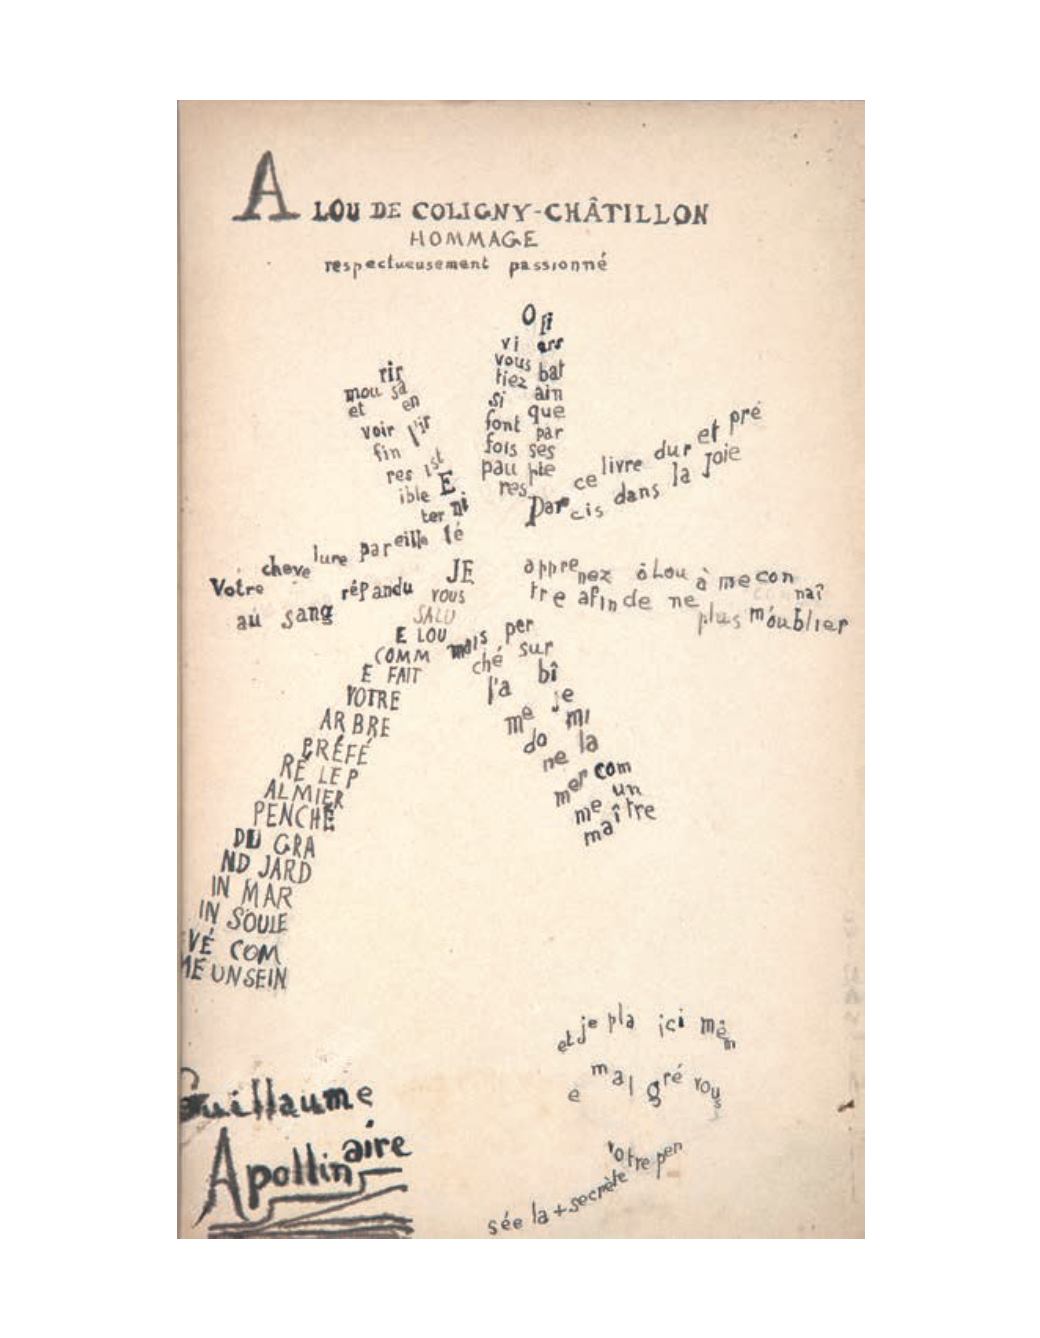 A LOU DE COLIGNY-CHÂTILLON
HOMMAGE
respectueusement passionné
rir
mou sa
et en
voir l'ir
fin
res ist
ible E
ter ni
té
O si
vi
vous bat
tiez ain
si que
font par
fois ses
pau piè
res
Par ce livre dur et pré
cis dans la Joie
Votre cheve lure pareille
au sang répandu
apprenez ô Lou à me con naî
tre afin de ne plus m'oublier
JE
VOUS
SALU
E LOU
COMM
E FAIT
VOTRE
AR BRE
PRÉFÉ
RÉ LE P
ALMIER
PENCHÉ
DU GRA
ND JARD
IN MAR
IN SOULE
VÉ COM
ME UN SEIN
mais per
ché sur
l'a bî
me je
do mi
ne la
mer com
me un
maître
et je pla ici mêm
e malgré vous
votre pen
sée la + secrète
Guillaume
Apollinaire